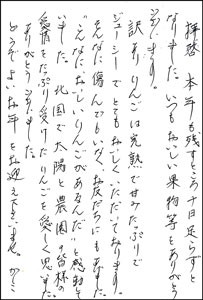 拝啓 本年も残すところ十日足らずと
なりました。いつもおいしい果物等をありがとう
ございます。
訳ありりんごは完熟で甘みたっぷりで
ジューシーでとてもおいしくいただいております。
そんなに傷んでもいなく、お友だちにもあげました。
"こんなおいしいりんごがあるなんだ"と感動して
いました。北国で太陽と農園の皆様の
愛情をたっぷり受けたりんごを愛しく思いました。
ありがとうございました。
どうぞよいお年をお迎え下さいませ。かしこ